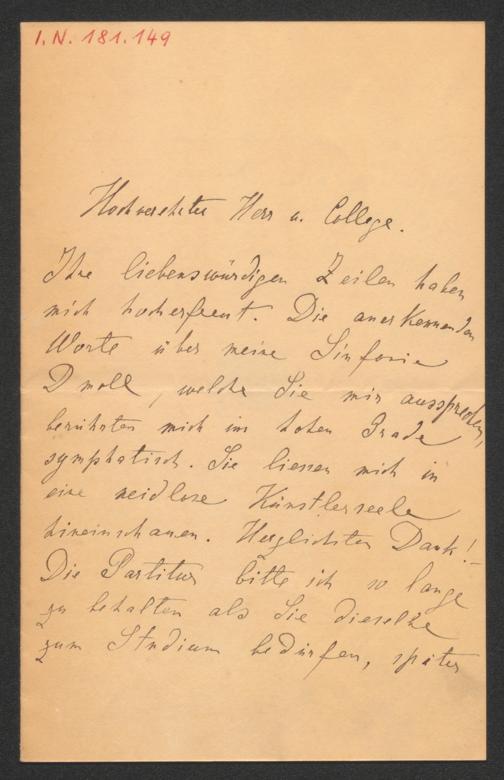 I.N. 181.149
Hochverehrter Herr u. College.
Ihre liebenswürdigen Zeilen haben
mich hocherfreut. Die anerkennenden
Worte über meine Sinfonie
D moll, welche Sie mir aussprechen,
berührten mich im hohen Grade
symphatisch. Sie liessen mich in
eine neidlose Künstlerseele
hineinschauen. Herzlichsten Dank!
Die Partitur bitte ich so lange
zu behalten als Sie dieselbe
zum Studium bedürfen, später